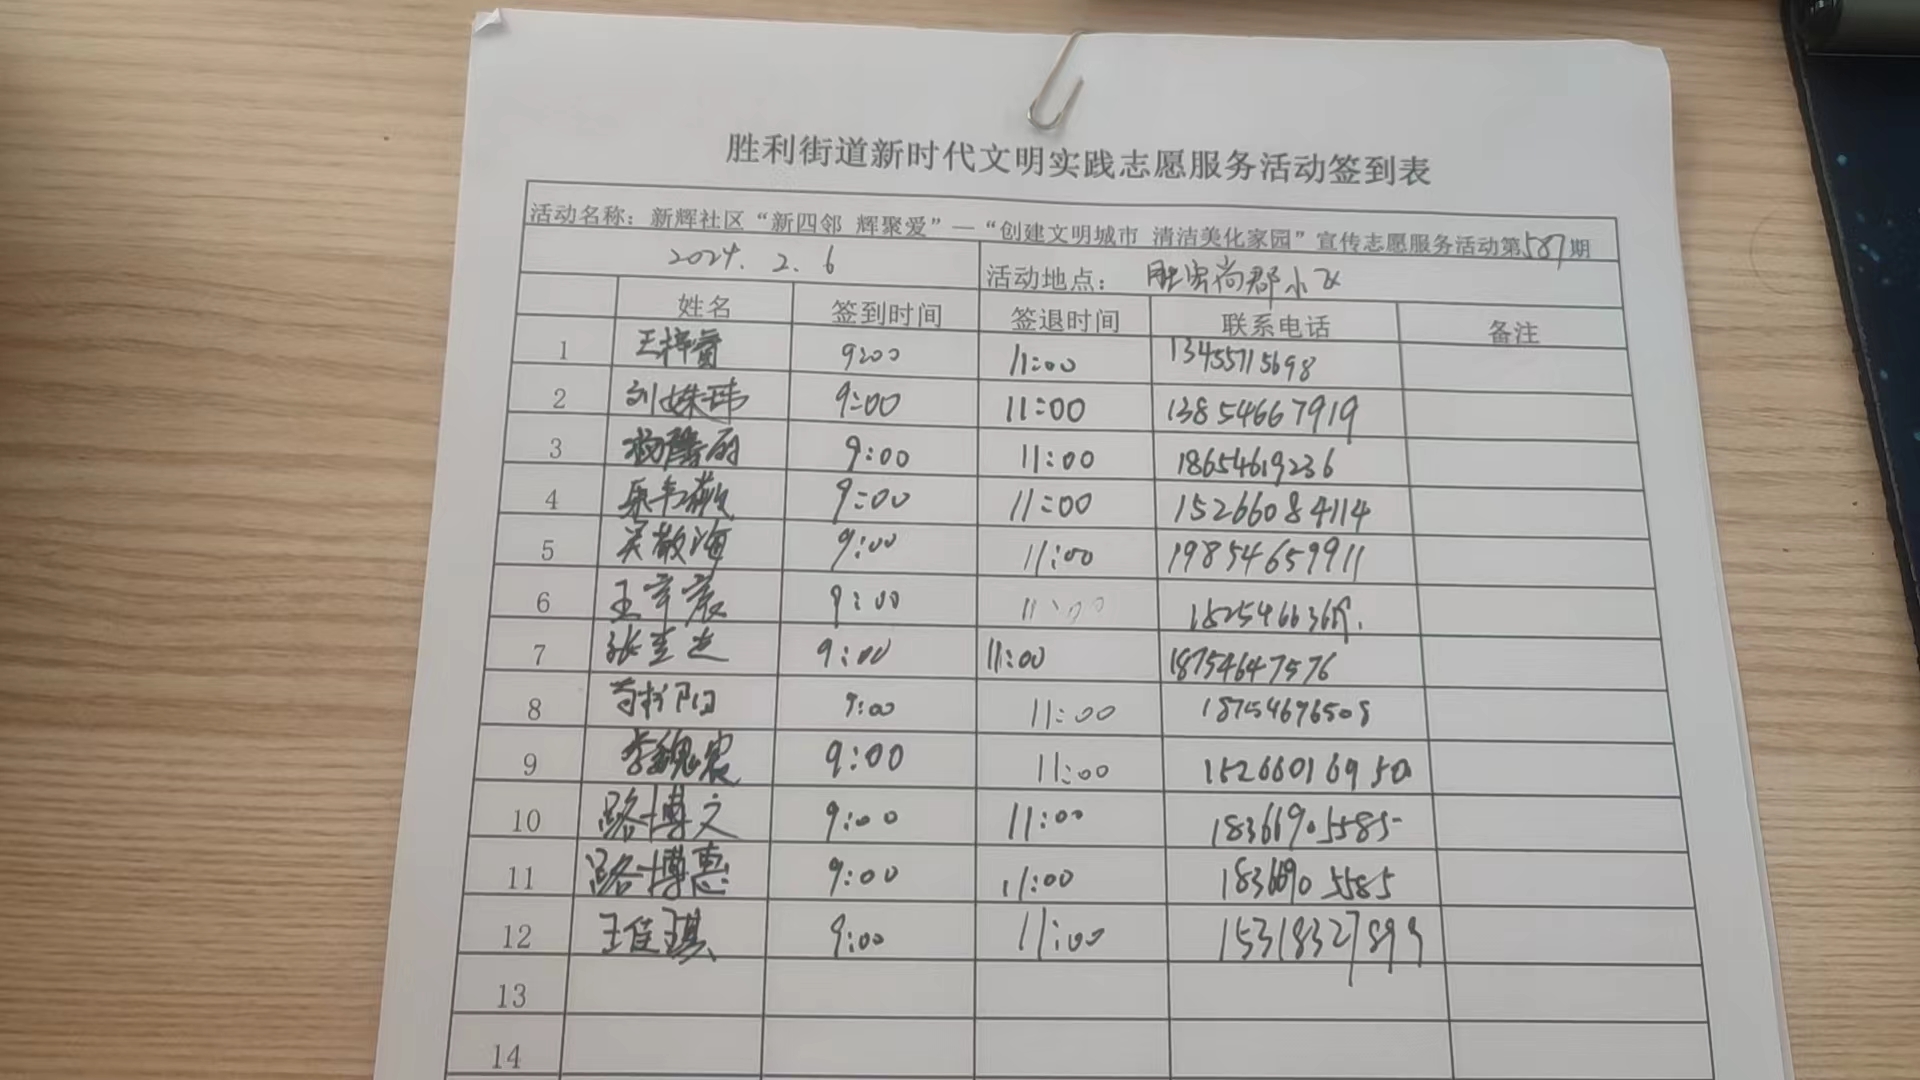 胜利街道新时代文明实践志愿服务活动签到表
活动名称：新辉社区“新四邻 辉聚爱”—“创建文明城市 清洁美化家园”宣传志愿服务活动第587期
2024. 2. 6 活动地点： 胜宏尚郡小区
姓名 签到时间 签退时间 联系电话 备注
1 王梓睿 9:00 11:00 13455715698
2 刘姝玮 9:00 11:00 13854667919
3 杨 9:00 11:00 18654619236
4 9:00 11:00 15266084114
5 吴敬海 9:00 11:00 19854659911
6 王 9:00 11:00
7 张 9:00 11:00 18754647576
8 9:00 11:00 18754676508
9 李魏宸 9:00 11:00 15266016950
10 路博文 9:00 11:00 18366905585
11 路博惠 9:00 11:00 18366905585
12 王佳琪 9:00 11:00 15318327899
13
14